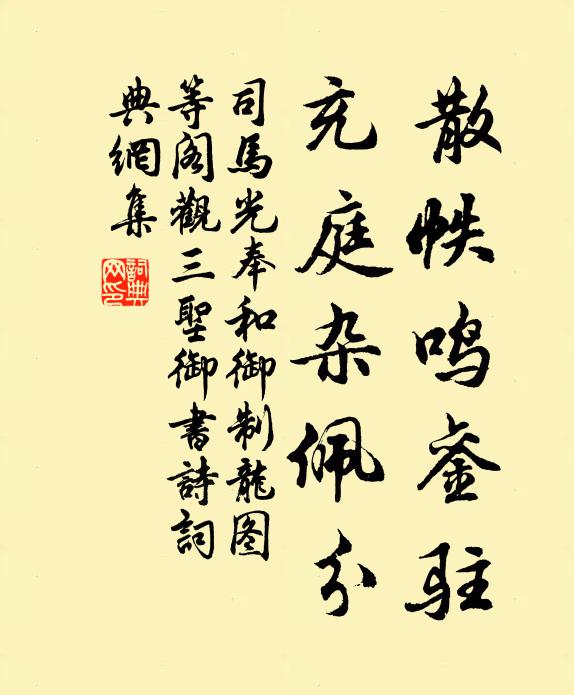 散帙鸣銮驻
充庭杂佩分
司馬光奉和御制龍图
等阁觀三聖御書詩詞
典網集
詞典網印